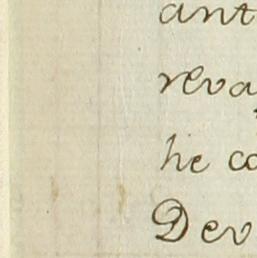 ant
reva
he co
Dev